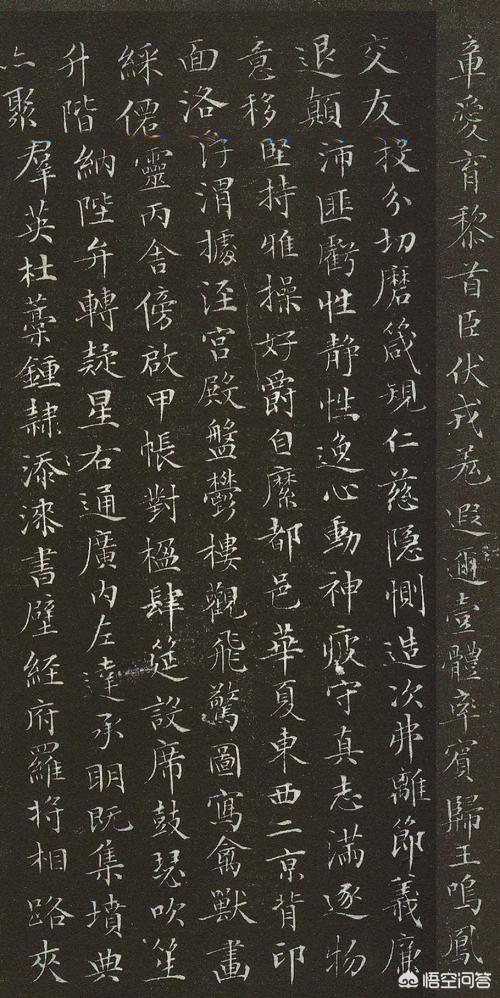 章愛育黎首臣伏戎羌遐邇壹體率賓歸王鳴鳳
交友投分切磨箴規仁慈隱惻造次弗離節義廉
退顛沛匪虧性靜情逸心動神疲守真志滿逐物
意移堅持雅操好爵自縻都邑華夏東西二京背印
面洛浮渭據涇宮殿盤鬱樓觀飛驚圖寫禽獸畫
綵僊靈丙舍傍啟甲帳對楹肆筵設席鼓瑟吹笙
升階納陛弁轉疑星右通廣內左達承明既集墳典
亦聚羣英杜藁鍾隸添漆書壁經府羅將相路夾
悟空问答